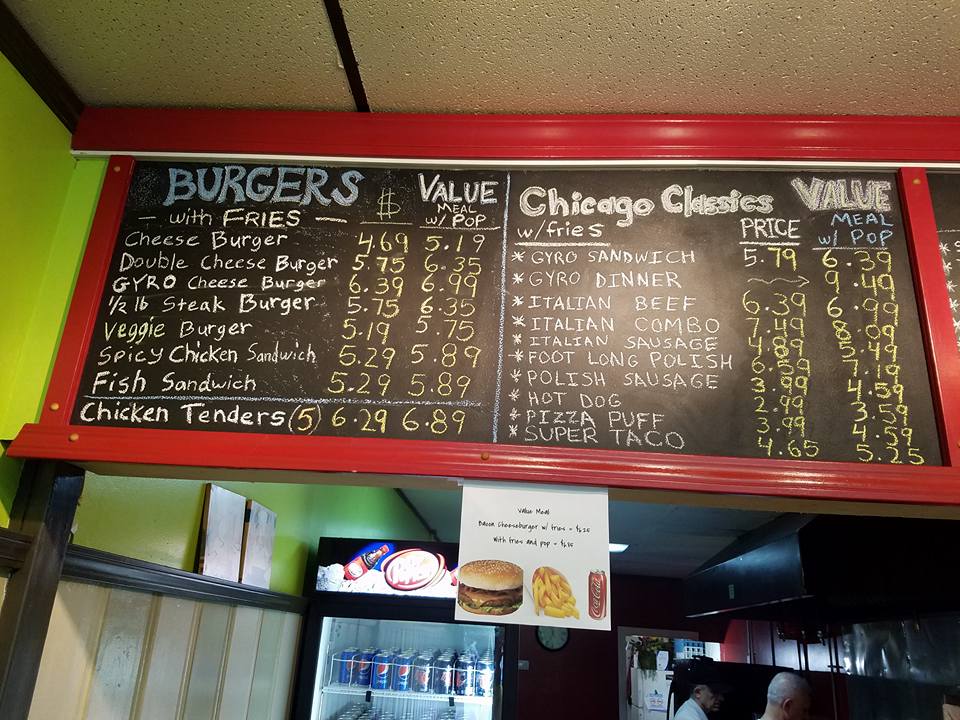 BURGERS $ VALUE
MEAL
w/ POP
— with FRIES —
Cheese Burger 4.69 5.19
Double Cheese Burger 5.75 6.35
GYRO Cheese Burger 6.39 6.99
1/2 lb Steak Burger 5.75 6.35
Veggie Burger 5.19 5.75
Spicy Chicken Sandwich 5.29 5.89
Fish Sandwich 5.29 5.89
Chicken Tenders (5) 6.29 6.89
Chicago Classics VALUE
MEAL
w/fries PRICE w/ POP
* GYRO SANDWICH 5.79 6.39
* GYRO DINNER 9.49
* ITALIAN BEEF 6.39 6.99
* ITALIAN COMBO 7.49 8.09
* ITALIAN SAUSAGE 4.89 5.49
* FOOT LONG POLISH 6.59 7.19
* POLISH SAUSAGE 3.99 4.59
* HOT DOG 2.99 3.59
* PIZZA PUFF 3.99 4.59
* SUPER TACO 4.65 5.25
Value Meal
Bacon Cheeseburger w/ fries =
With fries and pop =
Coca-Cola
Dr Pepper
pepsi